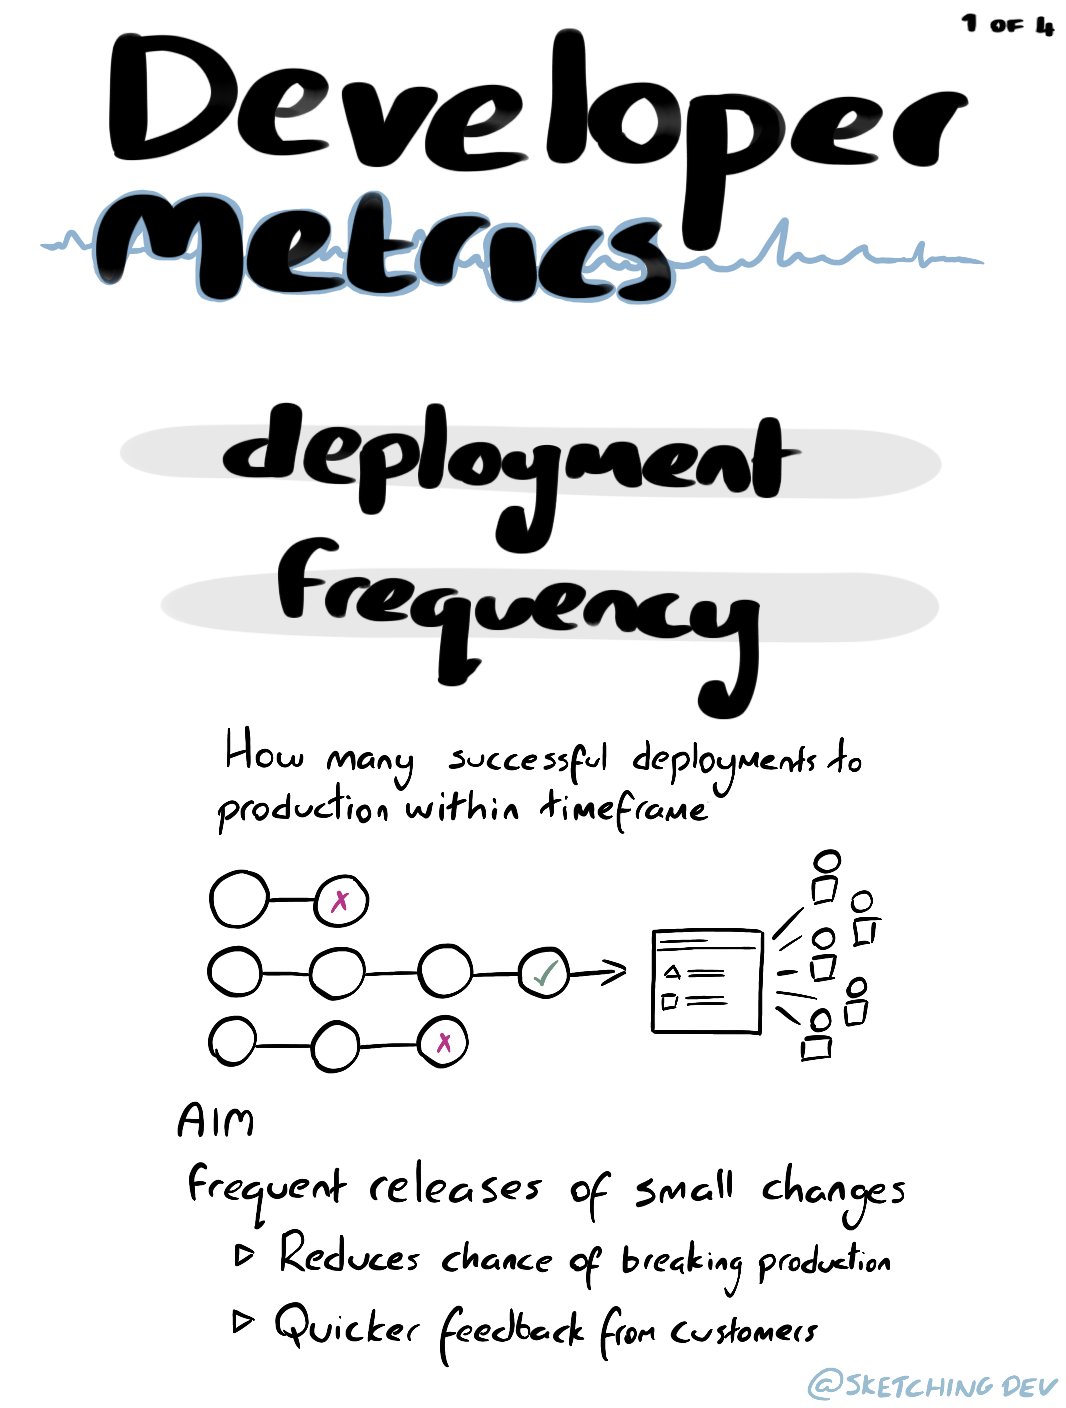 1 OF 4
Developer
Metrics
deployment
frequency
How many successful deployments to
production within timeframe
AIM
frequent releases of small changes
▷ Reduces chance of breaking production
▷ Quicker feedback from customers
@SKETCHING DEV